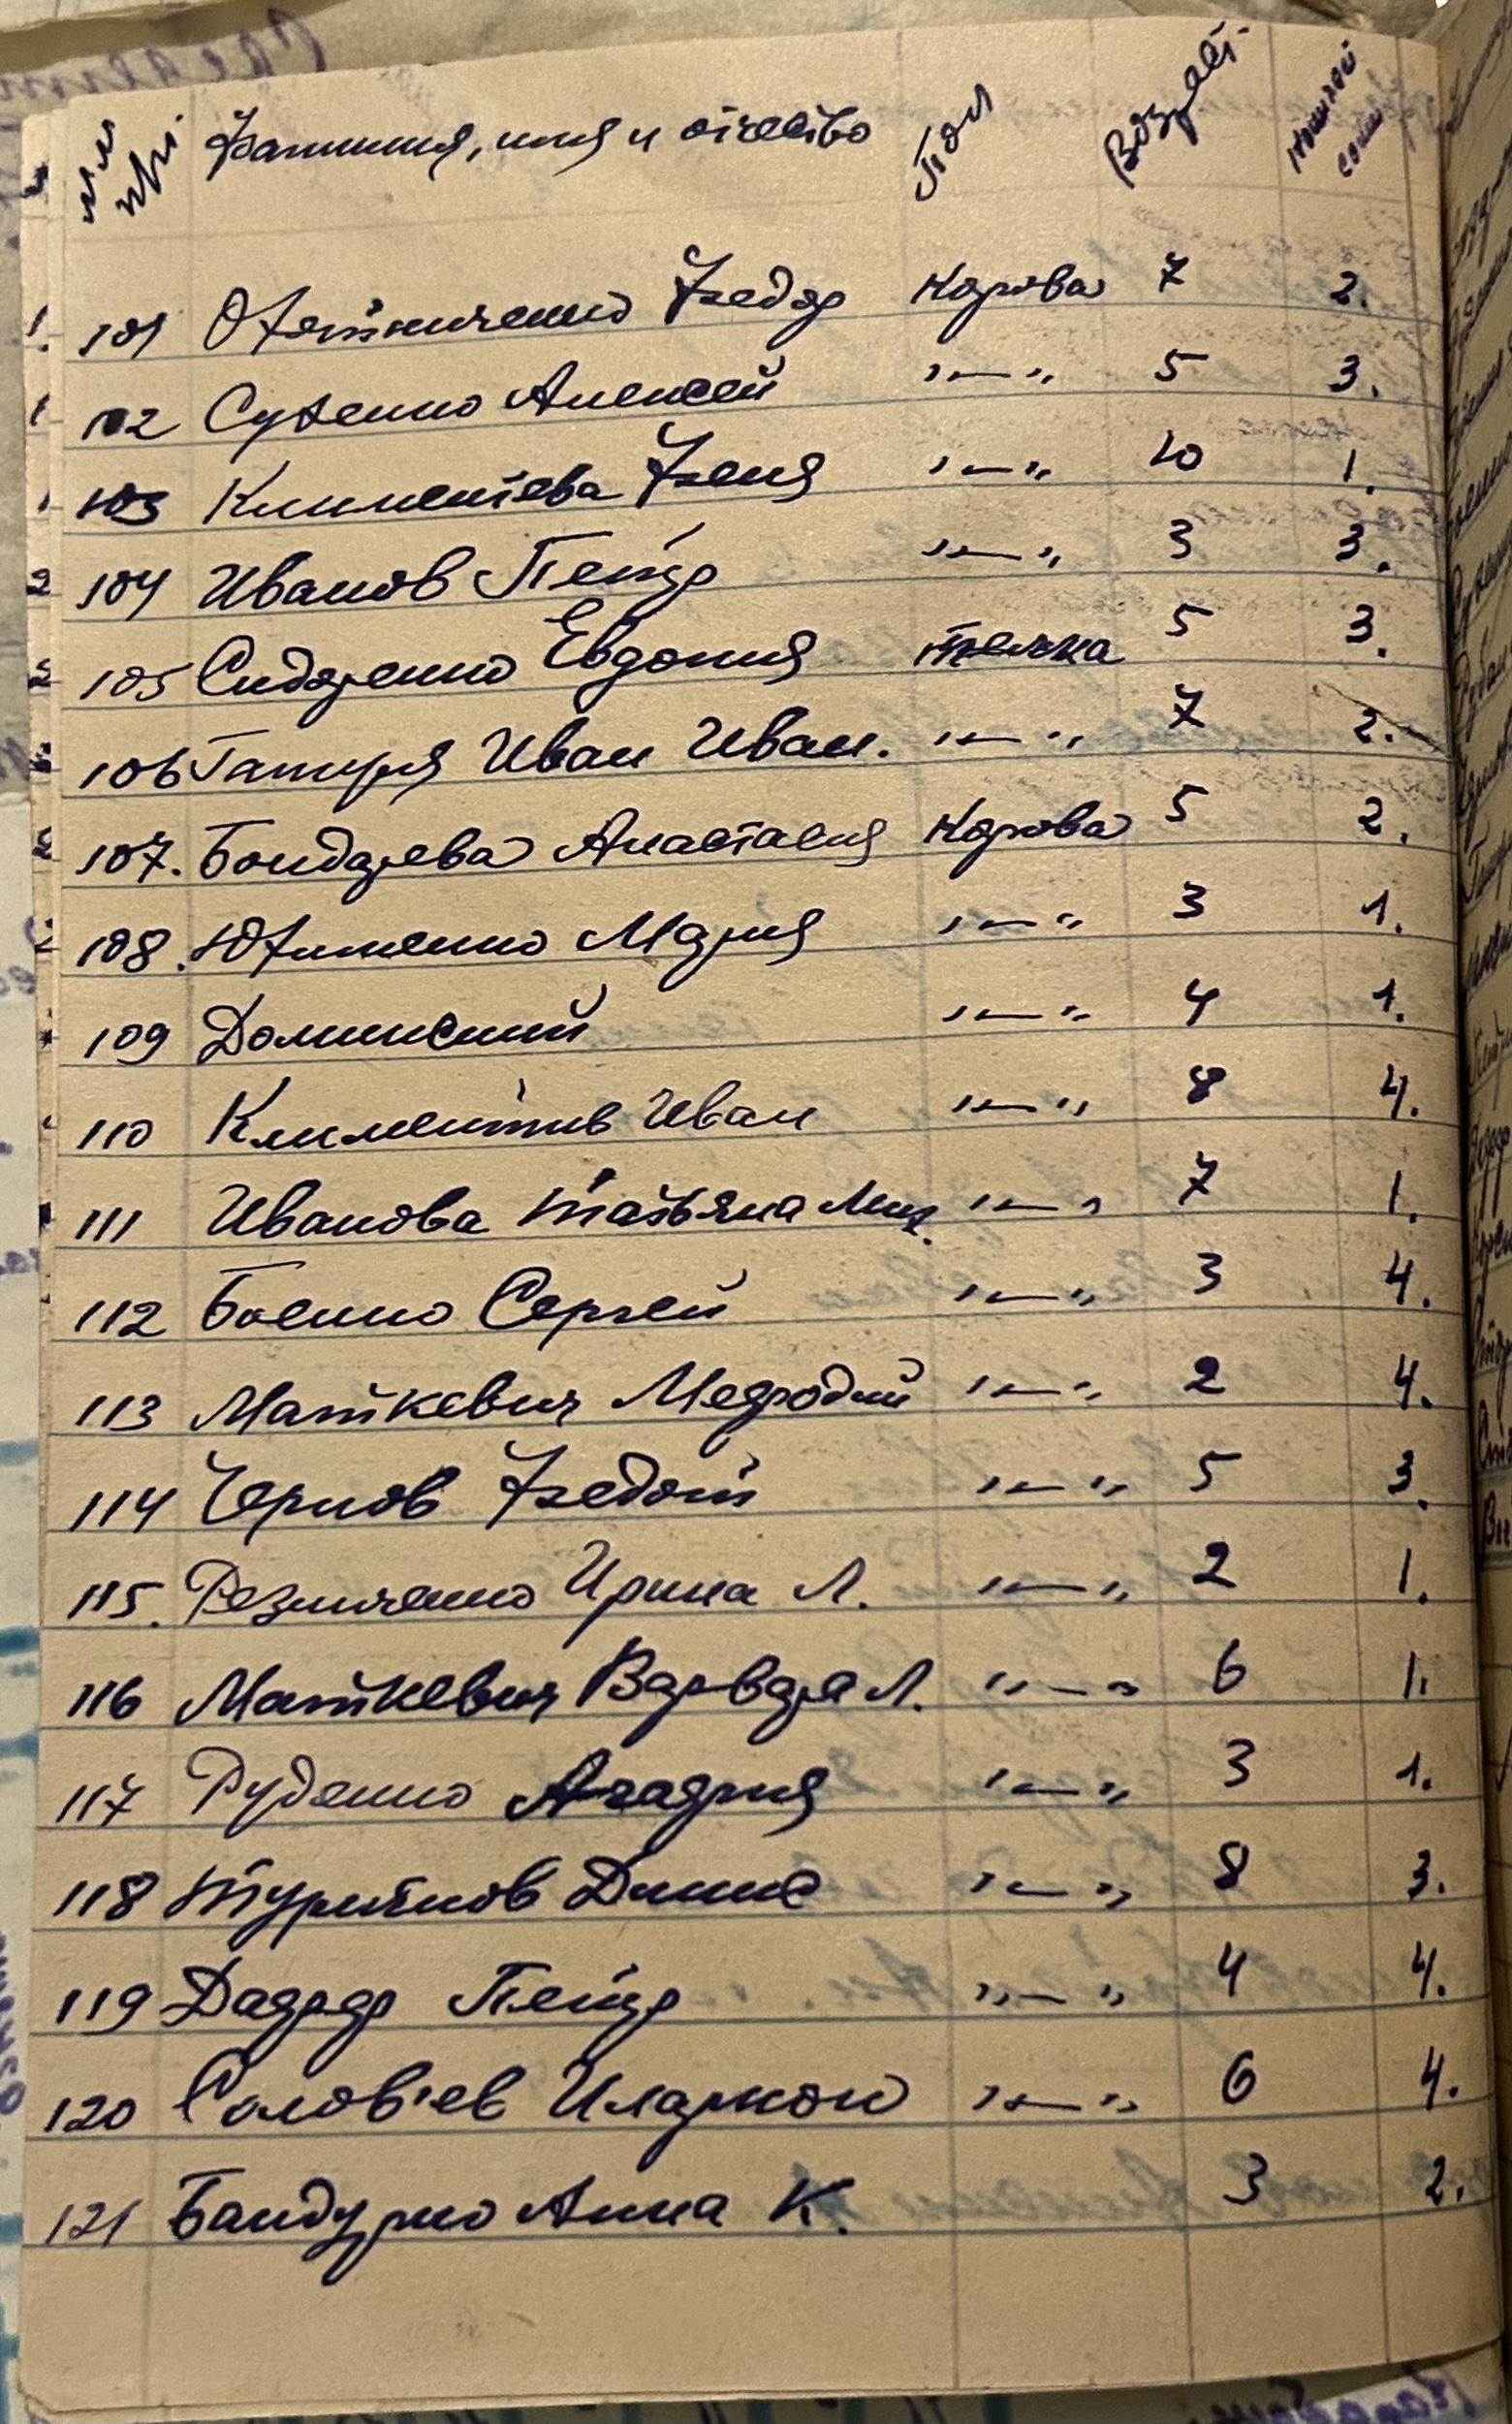 №№ п/п. Фамилия, имя и отчество Пол Возраст. Номерной
101 Охотниченко Федор Корова 7 2.
102 Сухенко Алексей "—" 5 3.
103 Климентева Феня "—" 10 1.
104 Иванов Петр "—" 3 3.
105 Сидоренко Евдокия телка 5 3.
106 Гамуря Иван Иван. "—" 7 2.
107. Бондарева Анастасия Корова 5 2.
108. Юхименко Мария "—" 3 1.
109 Долинский "—" 4 1.
110 Климентив Иван "—" 8 4.
111 Иванова Татьяна Мих. "—" 7 1.
112 Боенко Сергей "—" 3 4.
113 Маткевич Мефодий "—" 2 4.
114 Чернов Федот "—" 5 3.
115. Резниченко Ирина Л. "—" 2 1.
116 Маткевич Варвара Л. "—" 6 1.
117 Руденко Агафия "—" 3 1.
118 Динис "—" 8 3.
119 Петр "—" 4 4.
120 Солов'ев Иларион "—" 6 4.
121 Бандурко Анна К. 3 2.